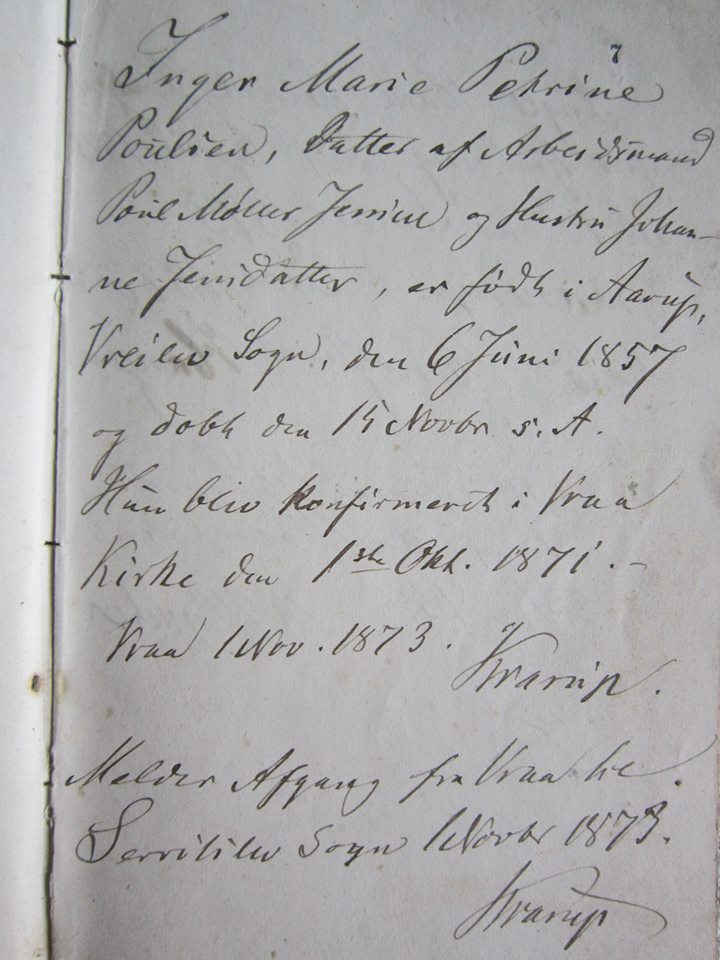 7
Inger Marie Petrine
Poulsen, Datter af Arbeidsmand
Poul Møller Jensen og Hustru Johan-
ne Jensdatter, er født i Aarup,
Vreilev Sogn, den 6 Juni 1857
og døbt den 15 Novbr s. A.
Hun blev konfirmeret i Vraa
Kirke den 1ste Okt. 1871. -
Vraa 1 Nov. 1873.
Krarup.
Melder Afgang fra Vraa til
Serritslev Sogn 1 Novbr 1873.
Krarup